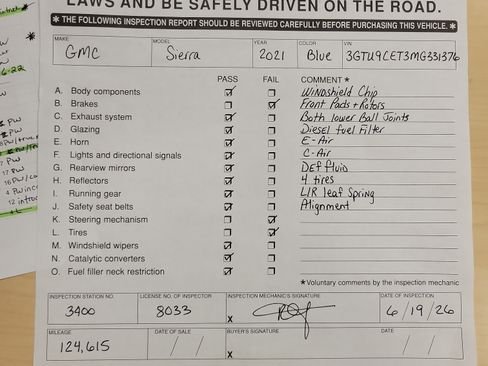 LAWS AND BE SAFELY DRIVEN ON THE ROAD.
* THE FOLLOWING INSPECTION REPORT SHOULD BE REVIEWED CAREFULLY BEFORE PURCHASING THIS VEHICLE. *
MAKE MODEL YEAR COLOR VIN
GMC Sierra 2021 Blue 3GTU9CET3MG331376
PASS FAIL COMMENT *
A. Body components Windshield Chip
B. Brakes Front Pads + Rotors
C. Exhaust system Both lower Ball Joints
D. Glazing Diesel fuel Filter
E. Horn E-Air
F. Lights and directional signals C-Air
G. Rearview mirrors DEF fluid
H. Reflectors 4 tires
I. Running gear L/R leaf Spring
J. Safety seat belts Alignment
K. Steering mechanism
L. Tires
M. Windshield wipers
N. Catalytic converters
O. Fuel filler neck restriction
* Voluntary comments by the inspection mechanic
INSPECTION STATION NO. LICENSE NO. OF INSPECTOR INSPECTION MECHANIC'S SIGNATURE DATE OF INSPECTION
3400 8033 X 6/19/26
MILEAGE DATE OF SALE BUYER'S SIGNATURE DATE
124,615 / / X / /